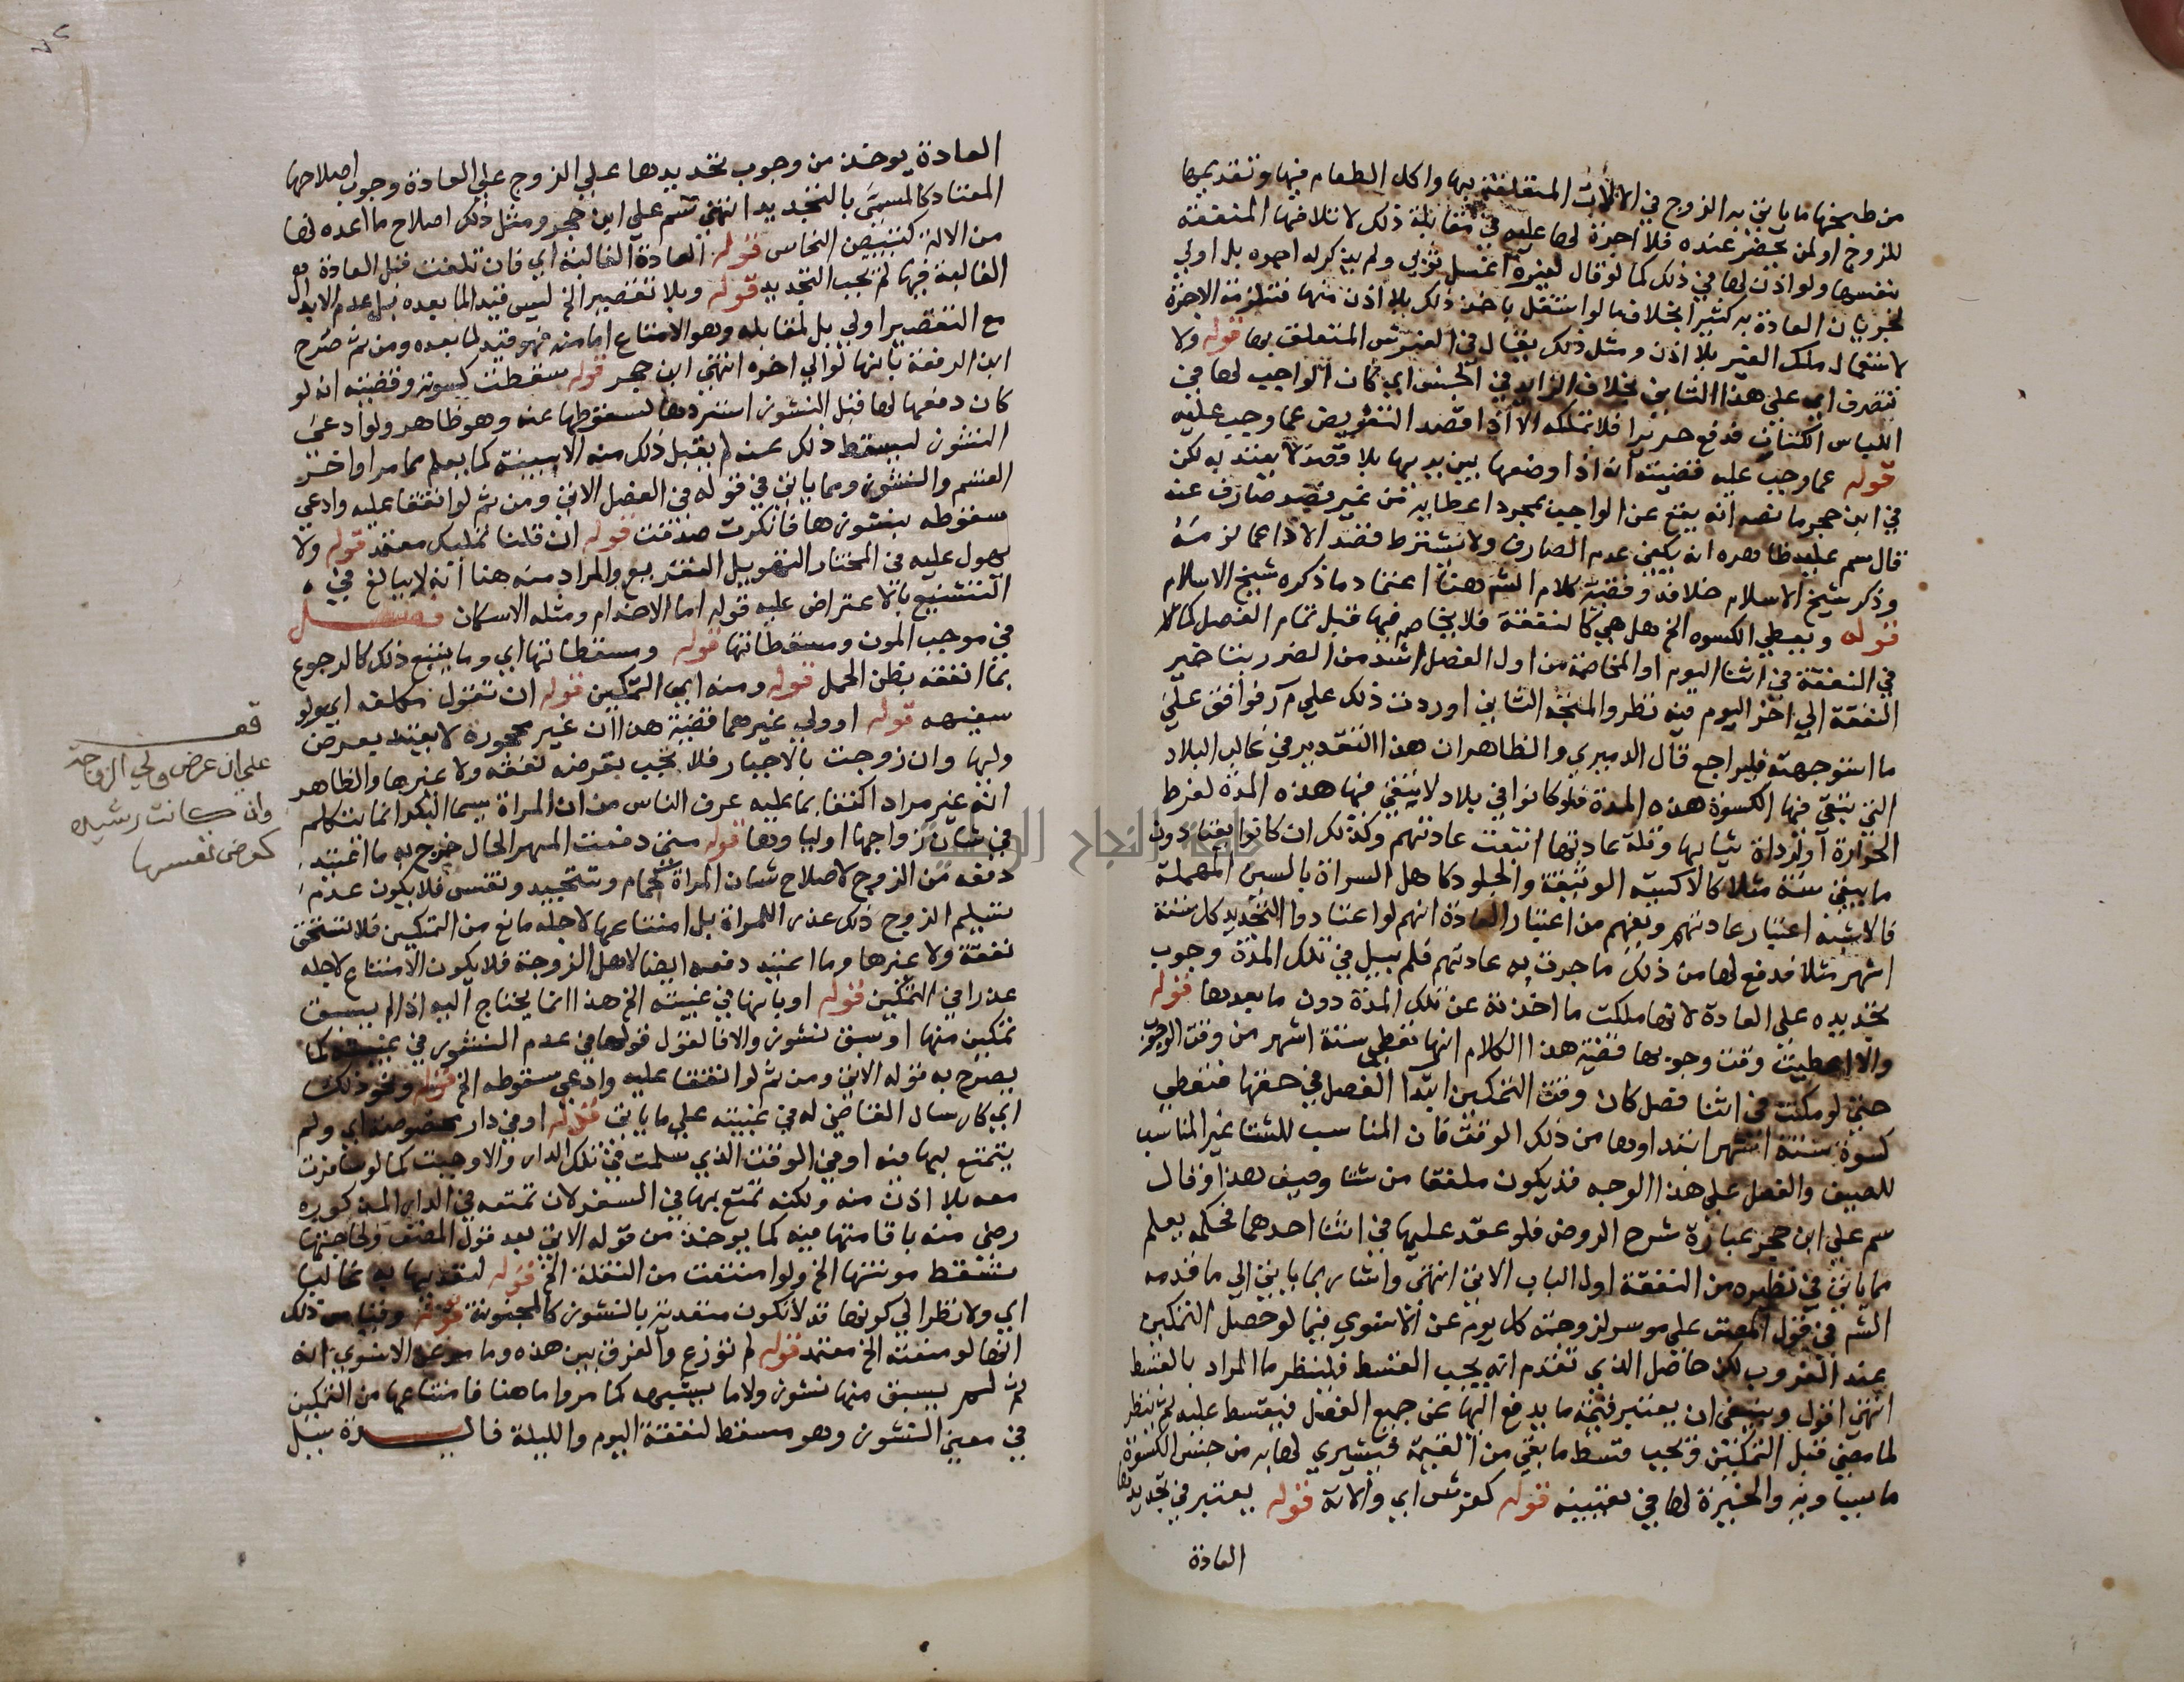 من طبخها ما ياتي به الزوج في الالات المتعلقة بها واكل الطعام فيها وتقديمها
للزوج او لمن يحضر عنده فلا اجرة لها عليه في مقابلة ذلك لاتلافها المنفعة
بنفسها ولو اذن لها في ذلك كما لو قال لغيره اغسل ثوبي ولم يذكر له اجره بل اولي
لجريان العادة به كثيرا بخلاف ما لو استقل باخذ ذلك بلا اذن منها فتلزمه الاجرة
لاستعمال ملك الغير بلا اذن ومثل ذلك يقال في الفرش المتعلق بها قوله ولا
تتصرف اي علي هذا الثاني بخلاف الزايد في الجنس اي كان الواجب لها في
اللباس الكتان فدفع حريرا فلا تملكه الا اذا قصد التعويض عما وجب عليه
قوله عما وجب عليه قضيته انه اذا وضعها بين يديها بلا قصد لا يعتد به لكن
في ابن حجر ما نصه انه يقع عن الواجب بمجرد اعطايه من غير قصد صارف عنه
قال سم عليه ظاهره انه يكفي عدم الصارف ولا يشترط قصد الاداء عما لزمه
وذكر شيخ الاسلام خلافه وقضية كلام الشم هنا اعتماد ما ذكره شيخ الاسلام
قوله ويعطي الكسوه الخ هل هي كالنفقة فلا يخاصم فيها قبل تمام الفصل كما لا
في النفقة في اثنا اليوم او المخاصمة من اول الفصل اشد من الضرر بتاخير
النفقة الي اخر اليوم فيه نظر والمتجه الثاني اوردت ذلك علي م ر فوافق علي
ما استوجهته فليراجع قال الدميري والظاهر ان هذا التقدير في غالب البلاد
التي تبقي فيها الكسوة هذه المدة فلو كانوا في بلاد لا تبقي فيها هذه المدة لفرط
الحرارة او لرداة ثيابها وقلة عادتها اتبعت عادتهم وكذلك ان كانوا يعتادون
ما يبقي سنة مثلا كالاكسية الوثيقة والجلود كاهل السراة بالسين المهملة
فالاشبه اعتبار عادتهم ويفهم من اعتبار العادة انهم لو اعتادوا التجديد كل ستة
اشهر مثلا فدفع لها من ذلك ما جرت به عادتهم فلم يبل في تلك المدة وجوب
تجديده علي العادة لانها ملكت ما اخذته عن تلك المدة دون ما بعدها قوله
والا اعطيت وقت وجوبها قضية هذا الكلام انها تعطي ستة اشهر من وقت الوجوب
حتي لو مكنت في اثنا فصل كان وقت التمكين ابتدا الفصل في حقها فتعطي
كسوة ستة اشهر ابتداوها من ذلك الوقت فان المناسب للشتا غير المناسب
للصيف والفصل علي هذا الوجه قد يكون ملفقا من شتا وصيف هذا وقال
سم علي ابن حجر عبارة شرح الروض فلو عقد عليها في اثنا احدهما فحكمه يعلم
مما ياتي في نظيره من النفقة اول الباب الاتي انتهي واشار بما ياتي الي ما قدمه
الشم في قول المصنف علي موسر لزوجته كل يوم عن الاسنوي فيما لو حصل التمكين
عند الغروب لكن حاصل الذي تقدم انه يجب القسط فلينظر ما المراد بالقسط
انتهي اقول وينبغي ان يعتبر قيمة ما يدفع اليها عن جميع الفصل فيقسط عليه ثم ينظر
لما مضي قبل التمكين ويجب قسط ما بقي من القيمة فيشتري لها به من جنس الكسوة
ما يساويه والخيرة لها في تعيينه قوله كفرش اي والاته قوله يعتبر في تجديدها
العادة
العادة يوخذ من وجوب تجديدها علي الزوج علي العادة وجوب اصلاحها
المعتاد كالمسمي بالتنجيد انتهي سم علي ابن حجر ومثل ذلك اصلاح ما اعده لها
من الالة كتبييض النحاس قوله العادة الغالبة اي فان تلفت قبل العادة
الغالبة فيها لم يجب التجديد قوله وبلا تقصير الخ ليس قيدا لما بعده بل عدم الابدال
مع التقصير اولي بل لمقابله وهو الامتناع اما منه فهو قيد لما بعده ومن ثم صرح
ابن الرفعة بانها لو الي اخره انتهي ابن حجر قوله سقطت كسوته وقضيته انه لو
كان دفعها لها قبل النشوز استردها لسقوطها عنه وهو ظاهر ولو ادعي
النشوز ليسقط ذلك عنه لم يقبل ذلك منه الا ببينة كما يعلم مما مر اواخر
القسم والنشوز ومما ياتي في قوله في الفصل الاتي ومن ثم لو اتفقا عليه وادعي
سقوطه بنشوزها فانكرت صدقت قوله ان قلنا تمليك معتمد قوله ولا
يهول عليه في المختار التهويل التفزيع والمراد منه هنا انه لا يبالغ في
التشنيع بالاعتراض عليه قوله اما الاخدام ومثله الاسكان فصل
في موجب المون ومسقطاتها قوله ومسقطاتها اي وما يتبع ذلك كالرجوع
بما انفقه بظن الحمل قوله ومنه اي التمكين قوله ان تقول مكلفه اي ولو
سفيهه قوله او ولي غيرهما قضية هذا ان غير محجورة لا يعتد بعرض
وليها وان زوجت بالاجبار فلا تجب بعرضه نفقة ولا غيرها والظاهر
انه غير مراد اكتفا بما عليه عرف الناس من ان المراة سيما البكر انما يتكلم
في شان زواجها اولياوها قوله متي دفعت المهر الحال خرج به ما اعتيد
دفعه من الزوج لاصلاح شان المراة كحمام وتنجيد ونقش فلا يكون عدم
تسليم الزوج ذلك عذر اللمراة بل امتناعها لاجله مانع من التمكين فلا تستحق
نفقة ولا غيرها وما اعتيد دفعه ايضا لاهل الزوجة فلا يكون الامتناع لاجله
عذرا في التمكين قوله او بانها في غيبته الخ هذا انما يحتاج اليه اذا لم يسبق
تمكين منها او سبق نشوز والا فالقول قولها في عدم النشوز في غيبته كما
يصرح به قوله الاتي ومن ثم لو اتفقا عليه وادعي سقوطه الخ قوله ونحو ذلك
اي كارسال القاضي له في غيبته علي ما ياتي قوله او في دار مخصوصة اي ولم
يتمتع بها فيه او في الوقت الذي سلمت في تلك الدار والا وجبت كما لو سافرت
معه بلا اذن منه ولكنه تمتع بها في السفر لان تمتعه في الدار المذكوره
رضي منه باقامتها فيه كما يوخذ من قوله الاتي بعد قول المصنف ولحاجتها
تسقط مونتها الخ ولو امتنعت من النقلة الخ قوله لتعديها به غالبا
اي ولا نظرا لي كونها قد لا تكون متعدية بالنشوز كالمجنونة قوله وقياس ذلك
انها لو منعته الخ معتمد قوله لم توزع والفرق بين هذه وما مر عن الاسنوي انه
ثم لم يسبق منها نشوز ولا ما يشبهه كما مر واما هنا فامتناعها من التمكين
في معني النشوز وهو مسقط لنفقة اليوم والليلة قبل
قف
علي ان عرض ولي الزوجة
وان كانت رشيده
كعرض نفسها